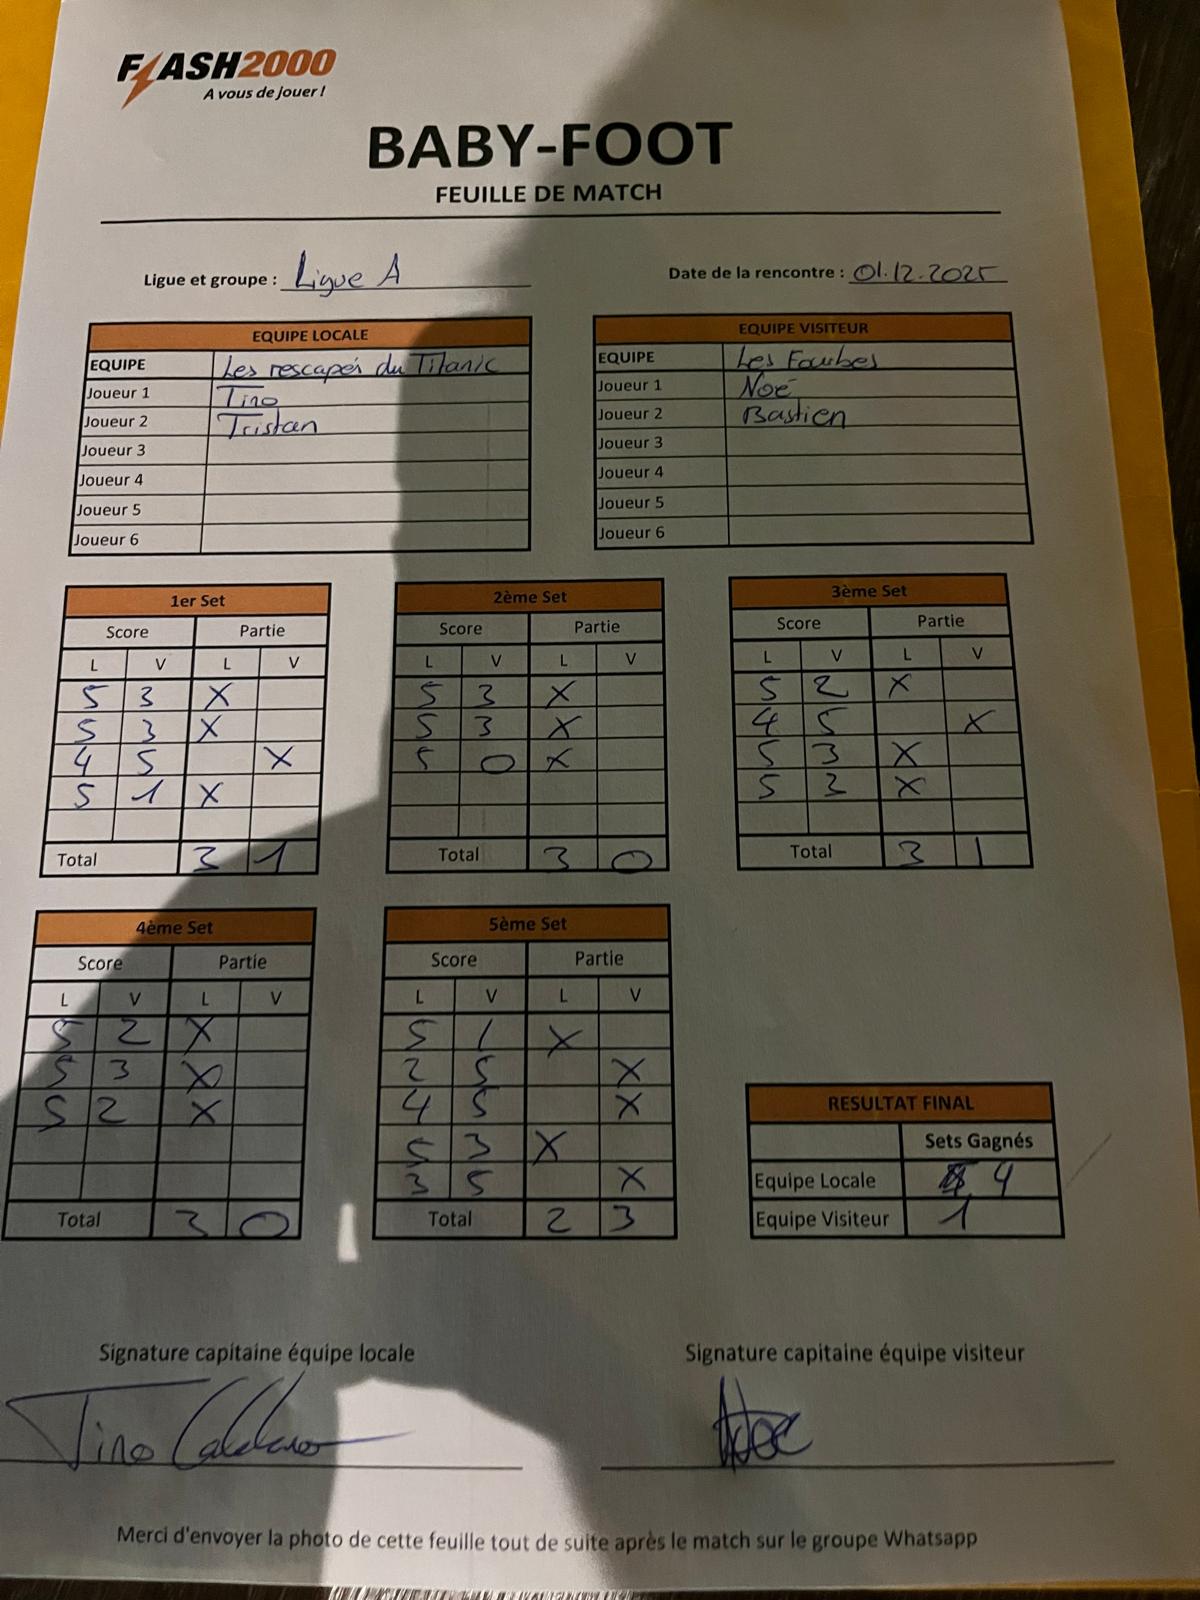 FLASH2000
A vous de Jouer !
BABY-FOOT
FEUILLE DE MATCH
Ligue et groupe : Ligue A
Date de la rencontre : 01.12.2025
EQUIPE LOCALE
EQUIPE Les rescapés du Titanic
Joueur 1 Tino
Joueur 2 Tristan
Joueur 3
Joueur 4
Joueur 5
Joueur 6
EQUIPE VISITEUR
EQUIPE Les Fourbes
Joueur 1 Noé
Joueur 2 Bastien
Joueur 3
Joueur 4
Joueur 5
Joueur 6
1er Set
Score Partie
L V L V
5 3 X
5 3 X
4 5 X
5 1 X
Total 3 1
2ème Set
Score Partie
L V L V
5 3 X
5 3 X
5 0 X
Total 3 0
3ème Set
Score Partie
L V L V
5 2 X
4 5 X
5 3 X
5 3 X
Total 3 1
4ème Set
Score Partie
L V L V
5 2 X
5 3 X
5 2 X
Total 3 0
5ème Set
Score Partie
L V L V
5 1 X
2 5 X
4 5 X
5 3 X
3 5 X
Total 2 3
RESULTAT FINAL
Sets Gagnés
Equipe Locale 4
Equipe Visiteur 1
Signature capitaine équipe locale
Tino
Signature capitaine équipe visiteur
Merci d'envoyer la photo de cette feuille tout de suite après le match sur le groupe Whatsapp